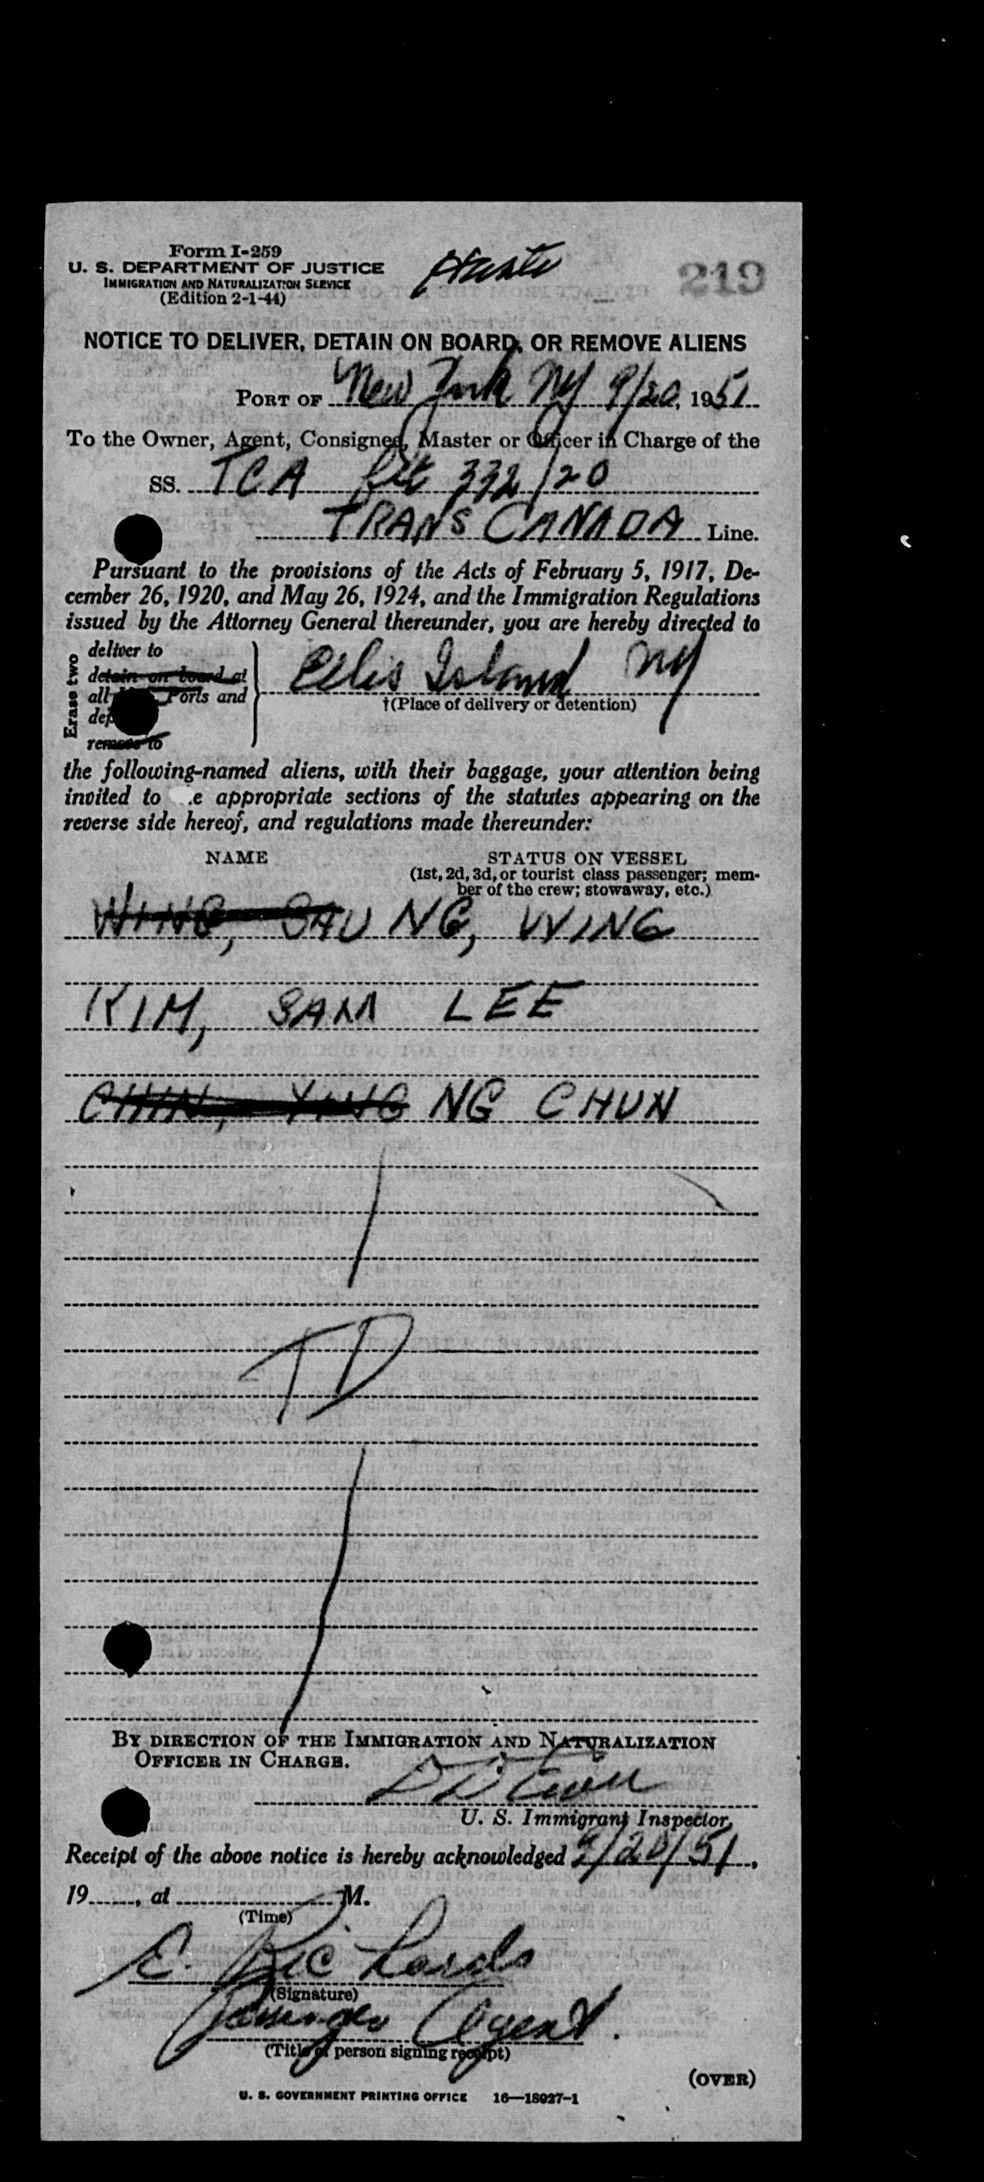 Form I-259
U. S. DEPARTMENT OF JUSTICE
IMMIGRATION AND NATURALIZATION SERVICE
(Edition 2-1-44)
219
NOTICE TO DELIVER, DETAIN ON BOARD, OR REMOVE ALIENS
PORT OF New York NY 9/20, 1951
To the Owner, Agent, Consignee, Master or Officer in Charge of the
SS. TCA flt 332/20
TRANS CANADA Line.
Pursuant to the provisions of the Acts of February 5, 1917, De-
cember 26, 1920, and May 26, 1924, and the Immigration Regulations
issued by the Attorney General thereunder, you are hereby directed to
Erase two
deliver to
detain on board at
all Ports and
remove to
Ellis Island NY
†(Place of delivery or detention)
the following-named aliens, with their baggage, your attention being
invited to appropriate sections of the statutes appearing on the
reverse side hereof, and regulations made thereunder:
NAME STATUS ON VESSEL
(1st, 2d, 3d, or tourist class passenger; mem-
ber of the crew; stowaway, etc.)
WING, SAU NG, WING
KIM, SAM LEE
CHIN, YING NG CHUN
TD
BY DIRECTION OF THE IMMIGRATION AND NATURALIZATION
OFFICER IN CHARGE.
U. S. Immigrant Inspector.
Receipt of the above notice is hereby acknowledged 9/20/51,
19, at M.
(Time)
E. Richards
(Signature)
Passenger Agent.
(Title of person signing receipt)
(OVER)
U. S. GOVERNMENT PRINTING OFFICE 16—18027-1